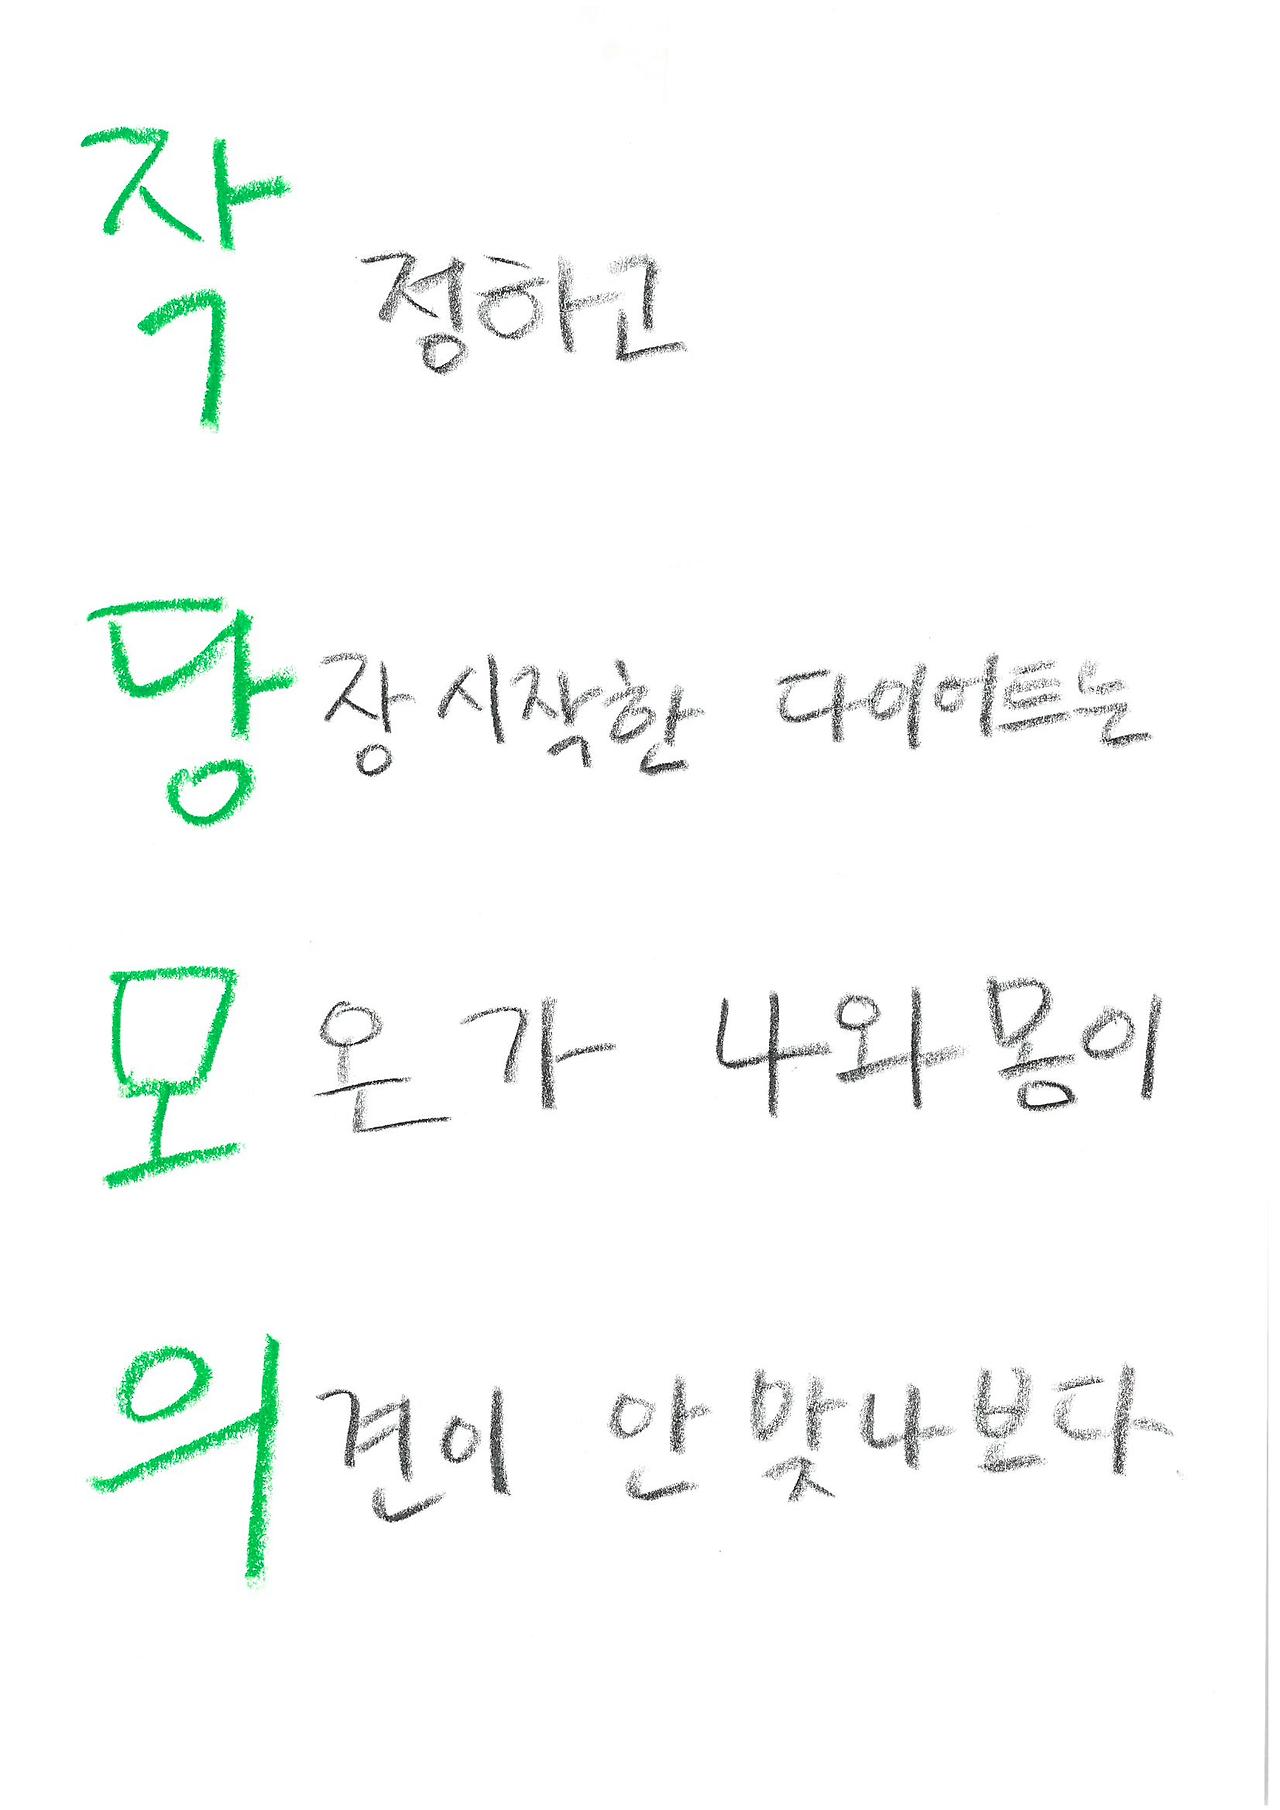 작정하고
당장 시작한 다이어트는
모온가 나와 몽이
의견이 안 맞나보다